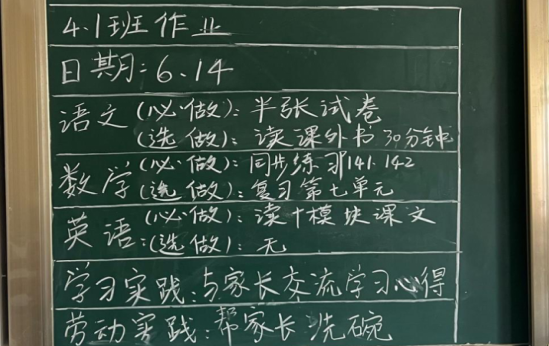 4.1班作业
日期:6.14
语文(必做):半张试卷
(选做):读课外书30分钟
数学(必做):同步练习141.142
(选做):复习第七单元
英语:(必做):读十模块课文
(选做):无
学习实践:与家长交流学习心得
劳动实践:帮家长洗碗